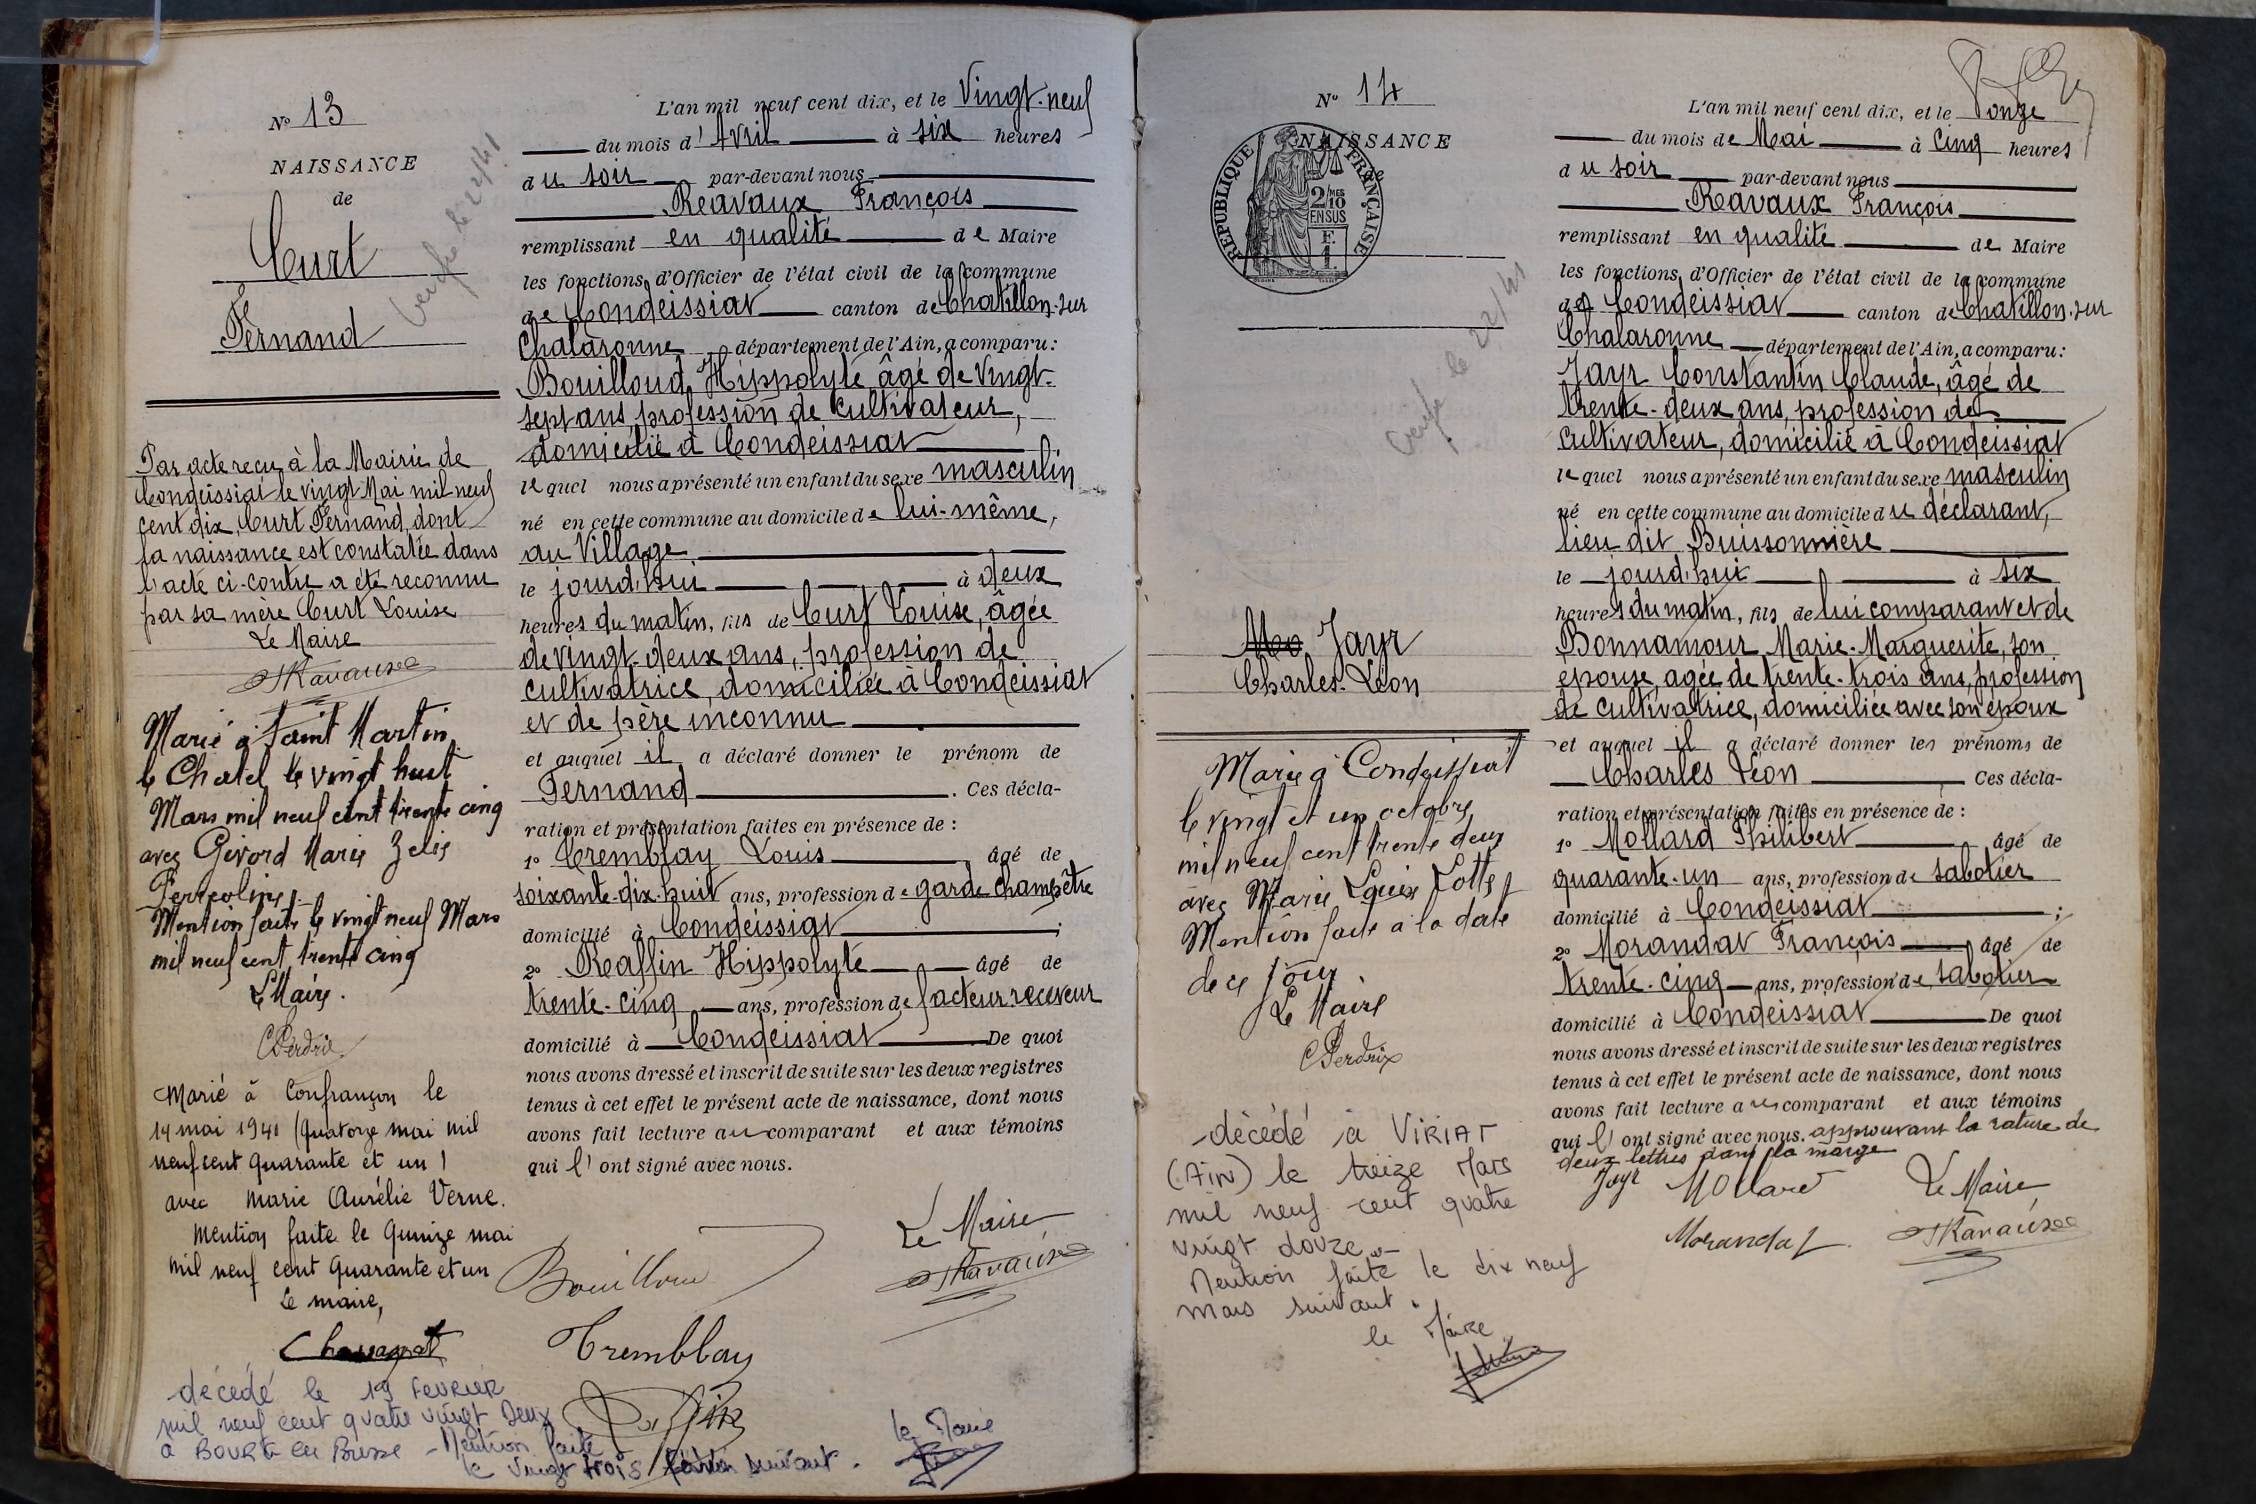 N° 13
NAISSANCE
de
Curt
Fernand
Vérifié le 22/41
Par acte reçu à la Mairie de
Condeissiat le vingt Mai mil neuf
cent dix, Curt Fernand, dont
la naissance est constatée dans
l'acte ci-contre a été reconnu
par sa mère Curt Louise
Le Maire
FRavaux
Marié à Saint Martin
le Chatel le vingt huit
Mars mil neuf cent trente cinq
avec Givord Marie Zelie
Perroline
Mention faite le vingt neuf Mars
mil neuf cent trente cinq
Le Maire.
CPerdrix
Marié à Confrançon le
14 mai 1941 (Quatorze mai mil
neuf cent quarante et un)
avec Marie Aurélie Verne.
Mention faite le Quinze mai
mil neuf cent Quarante et un
Le maire,
Chavagnat
décédé le 19 FEVRIER
mil neuf cent quatre vingt Deux
à BOURG en Bresse - Mention faite
le vingt trois février suivant.
le Maire
L'an mil neuf cent dix, et le Vingt-neuf
du mois d'Avril à six heures
du soir par-devant nous
Reavaux François
remplissant en qualité de Maire
les fonctions d'Officier de l'état civil de la commune
de Condeissiat canton de Chatillon-sur
Chalaronne département de l'Ain, a comparu :
Bouilloud Hippolyte, âgé de vingt-
sept ans, profession de cultivateur,
domicilié à Condeissiat
lequel nous a présenté un enfant du sexe masculin
né en cette commune au domicile de lui-même,
au Village
le jourd'hui à deux
heures du matin, fils de Curt Louise, âgée
de vingt-deux ans, profession de
cultivatrice, domiciliée à Condeissiat
et de père inconnu
et auquel il a déclaré donner le prénom de
Fernand . Ces décla-
ration et présentation faites en présence de :
1° Tremblay Louis âgé de
soixante-dix-huit ans, profession de garde champêtre
domicilié à Condeissiat ;
2° Raffin Hippolyte âgé de
trente-cinq ans, profession de facteur-receveur
domicilié à Condeissiat De quoi
nous avons dressé et inscrit de suite sur les deux registres
tenus à cet effet le présent acte de naissance, dont nous
avons fait lecture au comparant et aux témoins
qui l'ont signé avec nous.
Le Maire
Bouilloud
FRavaux
Tremblay
Raffin
N° 14
NAISSANCE
REPUBLIQUE FRANÇAISE
2/10 MES
EN SUS
F.
1.
Vérifié le 22/41
Mo Jayr
Charles-Léon
Marié à Condeissiat
le vingt et un octobre
mil neuf cent trente deux
avec Marie Louise Lotte
Mention faite à la date
de ce jour.
Le Maire
CPerdrix
décédé à VIRIAT
(Ain) le treize Mars
mil neuf cent quatre
vingt douze
Mention faite le dix neuf
mars suivant.
le Maire
L'an mil neuf cent dix, et le onze
du mois de Mai à Cinq heures
du soir par-devant nous
Reavaux François
remplissant en qualité de Maire
les fonctions d'Officier de l'état civil de la commune
de Condeissiat canton de Chatillon-sur
Chalaronne département de l'Ain, a comparu :
Jayr Constantin Claude, âgé de
trente-deux ans, profession de
cultivateur, domicilié à Condeissiat
lequel nous a présenté un enfant du sexe masculin
né en cette commune au domicile du déclarant,
lieu dit Buissonnière
le jourd'hui à six
heures du matin, fils de lui comparant et de
Bonnamour Marie-Marguerite, son
épouse, agée de trente-trois ans, profession
de cultivatrice, domiciliée avec son époux
et auquel il a déclaré donner les prénoms de
Charles Léon Ces décla-
ration et présentation faites en présence de :
1° Mollard Philibert âgé de
quarante-un ans, profession de sabotier
domicilié à Condeissiat ;
2° Morandat François âgé de
trente-cinq ans, profession de sabotier
domicilié à Condeissiat De quoi
nous avons dressé et inscrit de suite sur les deux registres
tenus à cet effet le présent acte de naissance, dont nous
avons fait lecture au comparant et aux témoins
qui l'ont signé avec nous. approuvant la rature de
deux lettres dans la marge
Jayr Mollard Le Maire
Morandat FRavaux